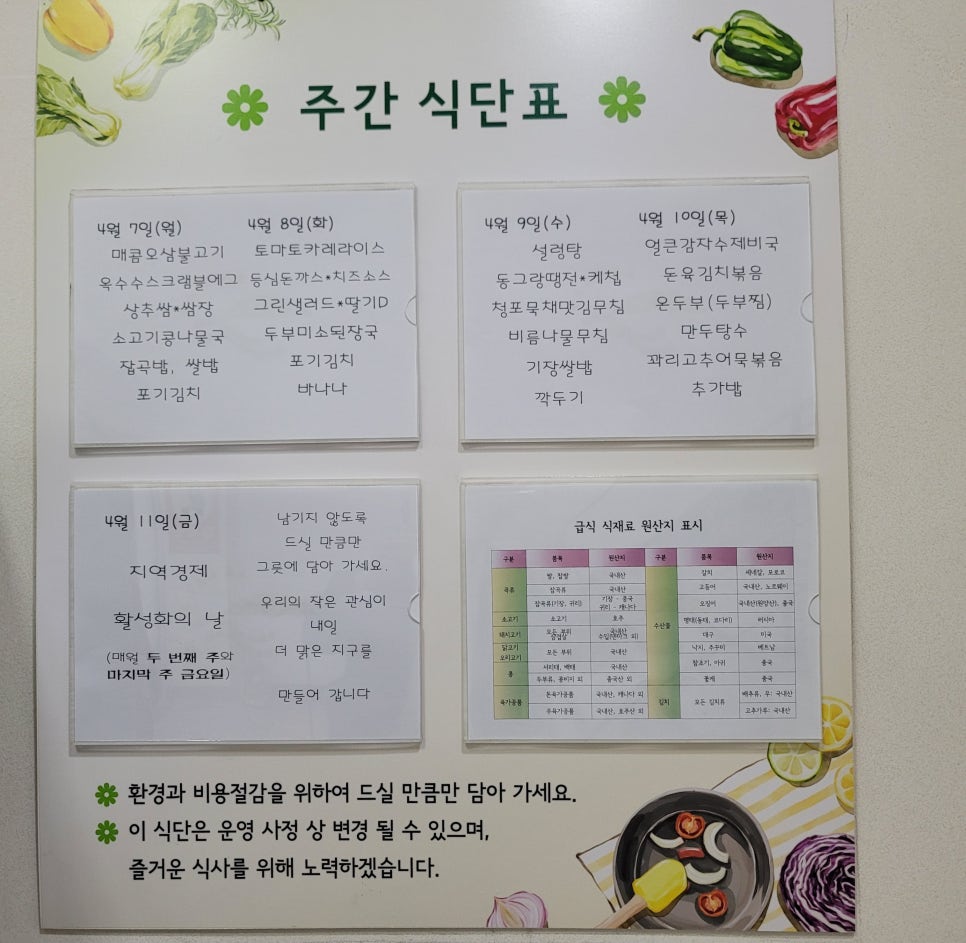 주간 식단표
4월 7일(월)
매콤오삼불고기
옥수수스크램블에그
상추쌈*쌈장
소고기콩나물국
잡곡밥, 쌀밥
포기김치
4월 8일(화)
토마토카레라이스
등심돈까스*치즈소스
그린샐러드*딸기D
두부미소된장국
포기김치
바나나
4월 9일(수)
설렁탕
동그랑땡전*케첩
청포묵채맛김무침
비름나물무침
기장쌀밥
깍두기
4월 10일(목)
얼큰감자수제비국
돈육김치볶음
온두부(두부찜)
만두탕수
꽈리고추어묵볶음
추가밥
4월 11일(금)
지역경제
활성화의 날
(매월 두 번째 주와
마지막 주 금요일)
남기지 않도록
드실 만큼만
그릇에 담아 가세요.
우리의 작은 관심이
내일
더 맑은 지구를
만들어 갑니다
급식 식재료 원산지 표시
구분 품목 원산지 구분 품목 원산지
곡류 쌀, 찹쌀 국내산
잡곡류 국내산
잡곡류(기장, 귀리) 기장 - 중국
귀리 - 캐나다
소고기 소고기 호주
돼지고기 모든 부위 국내산
닭고기
오리고기 모든 부위 국내산
콩 서리태, 백태 국내산
두부류, 콩비지 외 중국산 외
육가공품 돈육가공품 국내산, 캐나다 외
우육가공품 국내산, 호주산 외
수산물 갈치 세네갈, 모로코
고등어 국내산, 노르웨이
오징어 국내산(원양산), 중국
명태(동태, 코다리) 러시아
대구 미국
낙지, 주꾸미 베트남
참조기, 아귀 중국
꽃게 중국
김치 모든 김치류 배추류, 무: 국내산
고추가루: 국내산
환경과 비용절감을 위하여 드실 만큼만 담아 가세요.
이 식단은 운영 사정 상 변경 될 수 있으며,
즐거운 식사를 위해 노력하겠습니다.